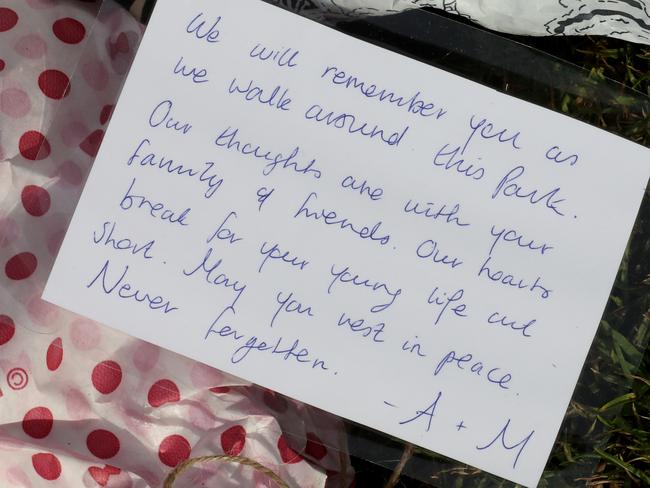 We will remember you as
we walk around this Park.
Our thoughts are with your
family & friends. Our hearts
break for your young life cut
short. May you rest in peace.
Never forgotten.
- A + M
©